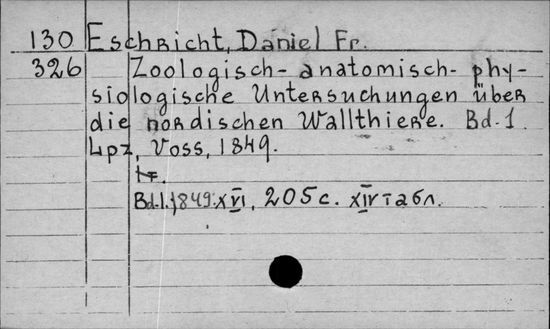 130 Eschricht, Daniel Fr.
326 Zoologisch-anatomisch-phy-
siologische Untersuchungen über
die nordischen Wallthiere. Bd. 1.
Lpz, Voss, 1849.
Bd.1. 1849. XVI, 205 с. XIV табл.